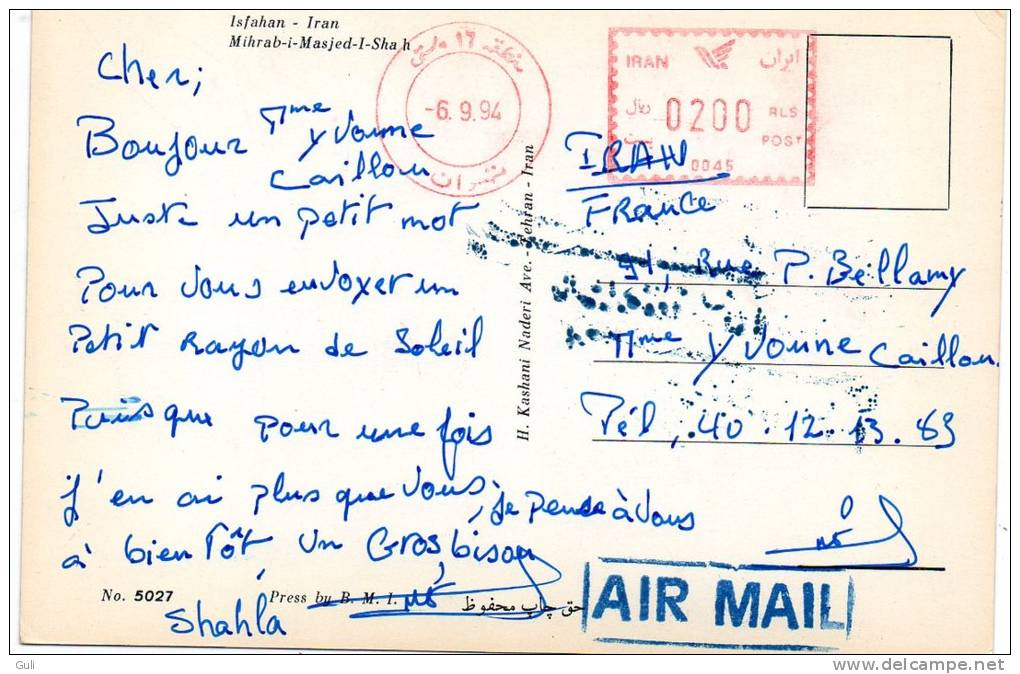 Isfahan - Iran
Mihrab-i-Masjed-I-Shah
Cher,
Bonjour Mme Yvonne
Caillou
Juste un petit mot
Pour vous envoyer un
Petit Rayon de Soleil
Puisque pour une fois
j'en ai plus que vous, je pense à vous
à bientôt, un Gros bisou
Shahla
No. 5027
Press by B. M. I.
حق چاپ محفوظ
H. Kashani Naderi Ave. - Tehran - Iran
منطقه ۱۶ پستی
-6.9.94
تهران
IRAN ایران
ریال 0200 RLS
پست POST
0045
IRAN
France
91, Rue P. Bellamy
Mme Yvonne Caillou
Tél, 40.12.13.83
AIR MAIL
Guli
delcampe.net